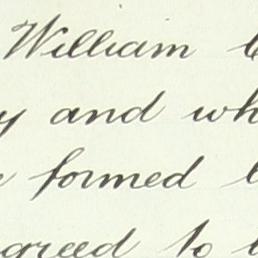 William
and
formed
agreed to